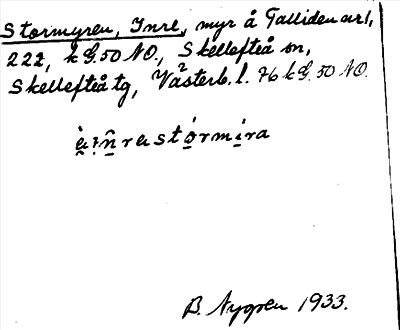 Stormyren, Inre, myr å Talliden avs,
222, k G. 50 NO., Skellefteå sn,
Skellefteå tg, Västerb. l. 76 k G. 50 NO.
B. Nygren 1933.